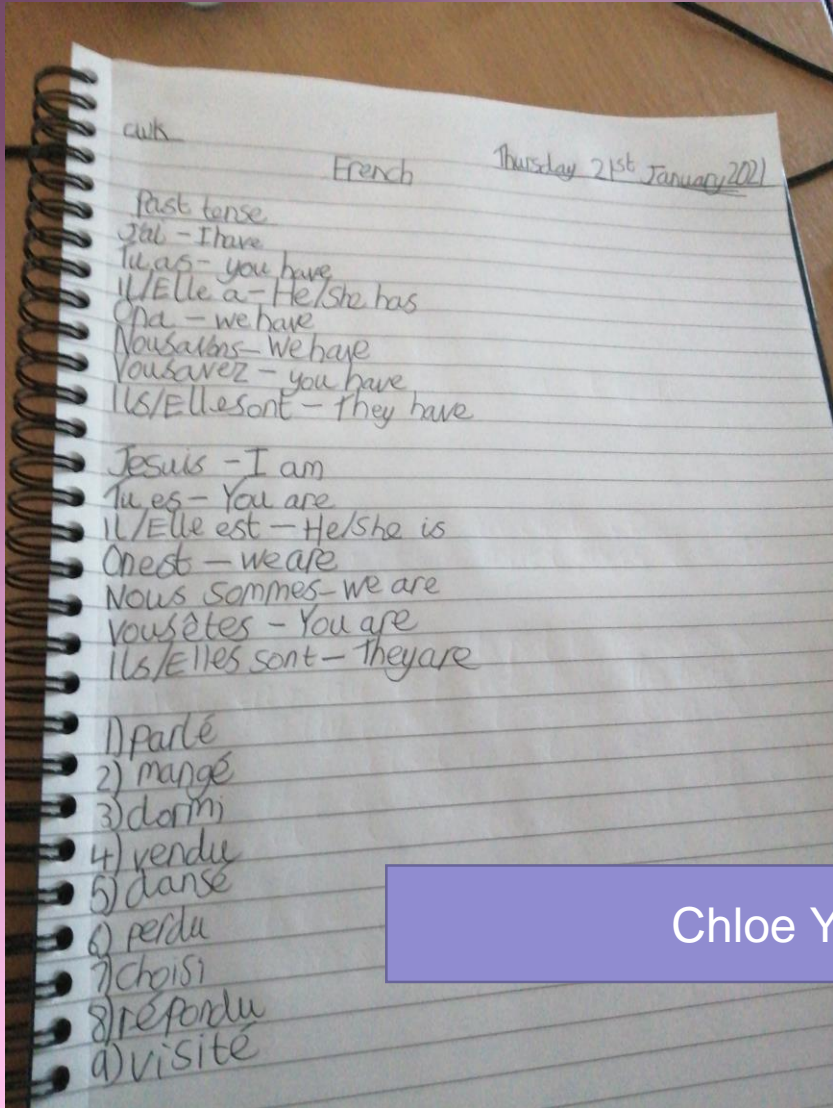 cwk
French
Thursday 21st January 2021
Past tense
J'ai - I have
Tu as - you have
Il/Elle a - He/She has
On a - we have
Nousavons - We have
Vousavez - you have
Ils/Ellesont - They have
Jesuis - I am
Tu es - You are
Il/Elle est - He/She is
Onest - we are
Nous sommes - we are
vousêtes - You are
Ils/Elles sont - Theyare
1) parlé
2) mangé
3) dormi
4) vendu
5) dansé
6) perdu
7) choisi
8) répondu
9) visité
Chloe Y